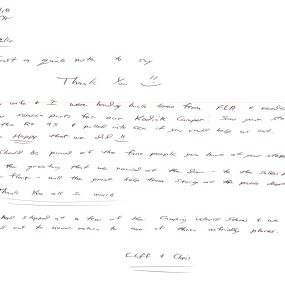 Just a quick note to say
Thank You !!
wife & I were heading back home from FLA & needed
service parts for our Kodiak Camper. Saw your store
the Rt 95 & pulled into see if you could help us out.
Happy that we did !!
should be proud of the fine people you have at your store
the greeting that we received at the door - to the sales
floor - and the great help from at the parts
Thank You all so much
stopped at a few of the Camping World Stores & we
out to never return to one of those unfriendly places.
Cliff & Chris